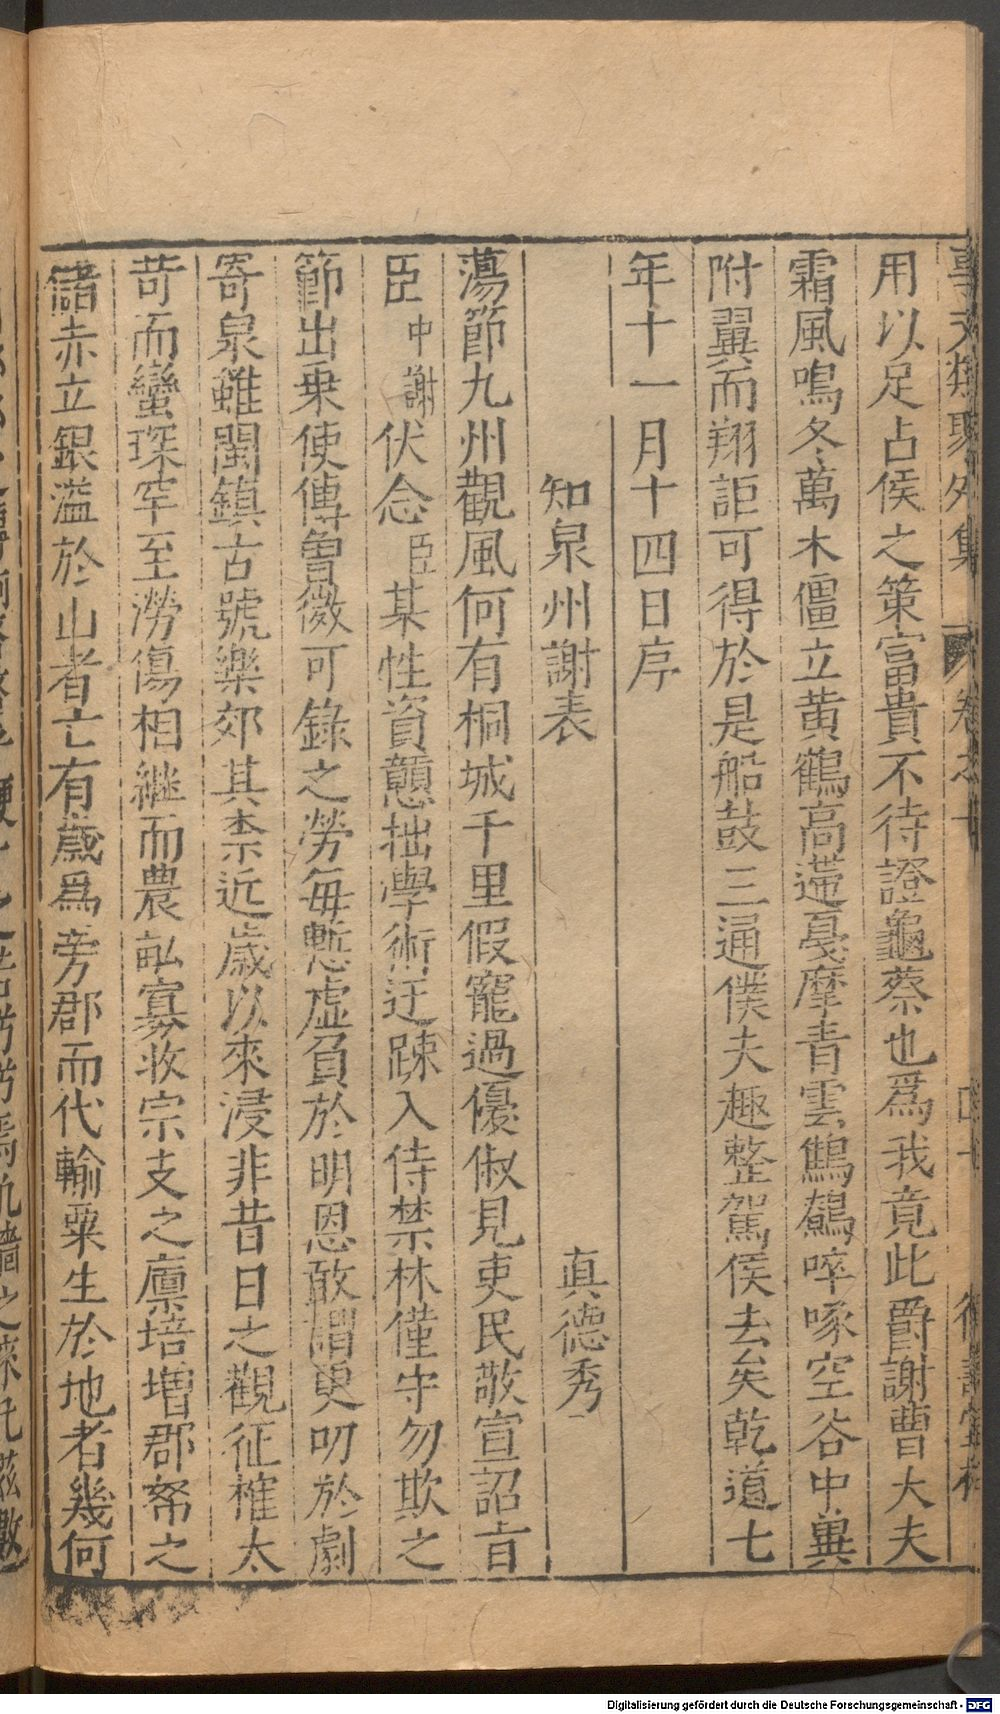 事文類聚外集 卷之十
用以足占侯之策富貴不待證龜蔡也爲我竟此爵謝曹大夫
霜風鳴冬萬木僵立黃鶴高邁戞摩青雲鷦鷯啐啄空谷中冀
附翼而翔詎可得於是船鼓三通僕夫趣整駕侯去矣乾道七
年十一月十四日序
知泉州謝表 真德秀
蕩節九州觀風何有桐城千里假寵過優俶見吏民敬宣詔旨
臣中謝伏念臣某性資戇拙學術迂踈入侍禁林僅守勿欺之
節出乗使傳曾微可錄之勞每慙虛負於明恩敢謂更叨於劇
寄泉雖閩鎮古號樂郊其柰近歲以來浸非昔日之觀征榷太
苛而蠻琛罕至澇傷相繼而農畝寡收宗支之廩培增郡帑之
儲赤立銀滥於山者亡有歲爲旁郡而代輸粟生於地者幾何
Digitalisierung gefördert durch die Deutsche Forschungsgemeinschaft - DFG